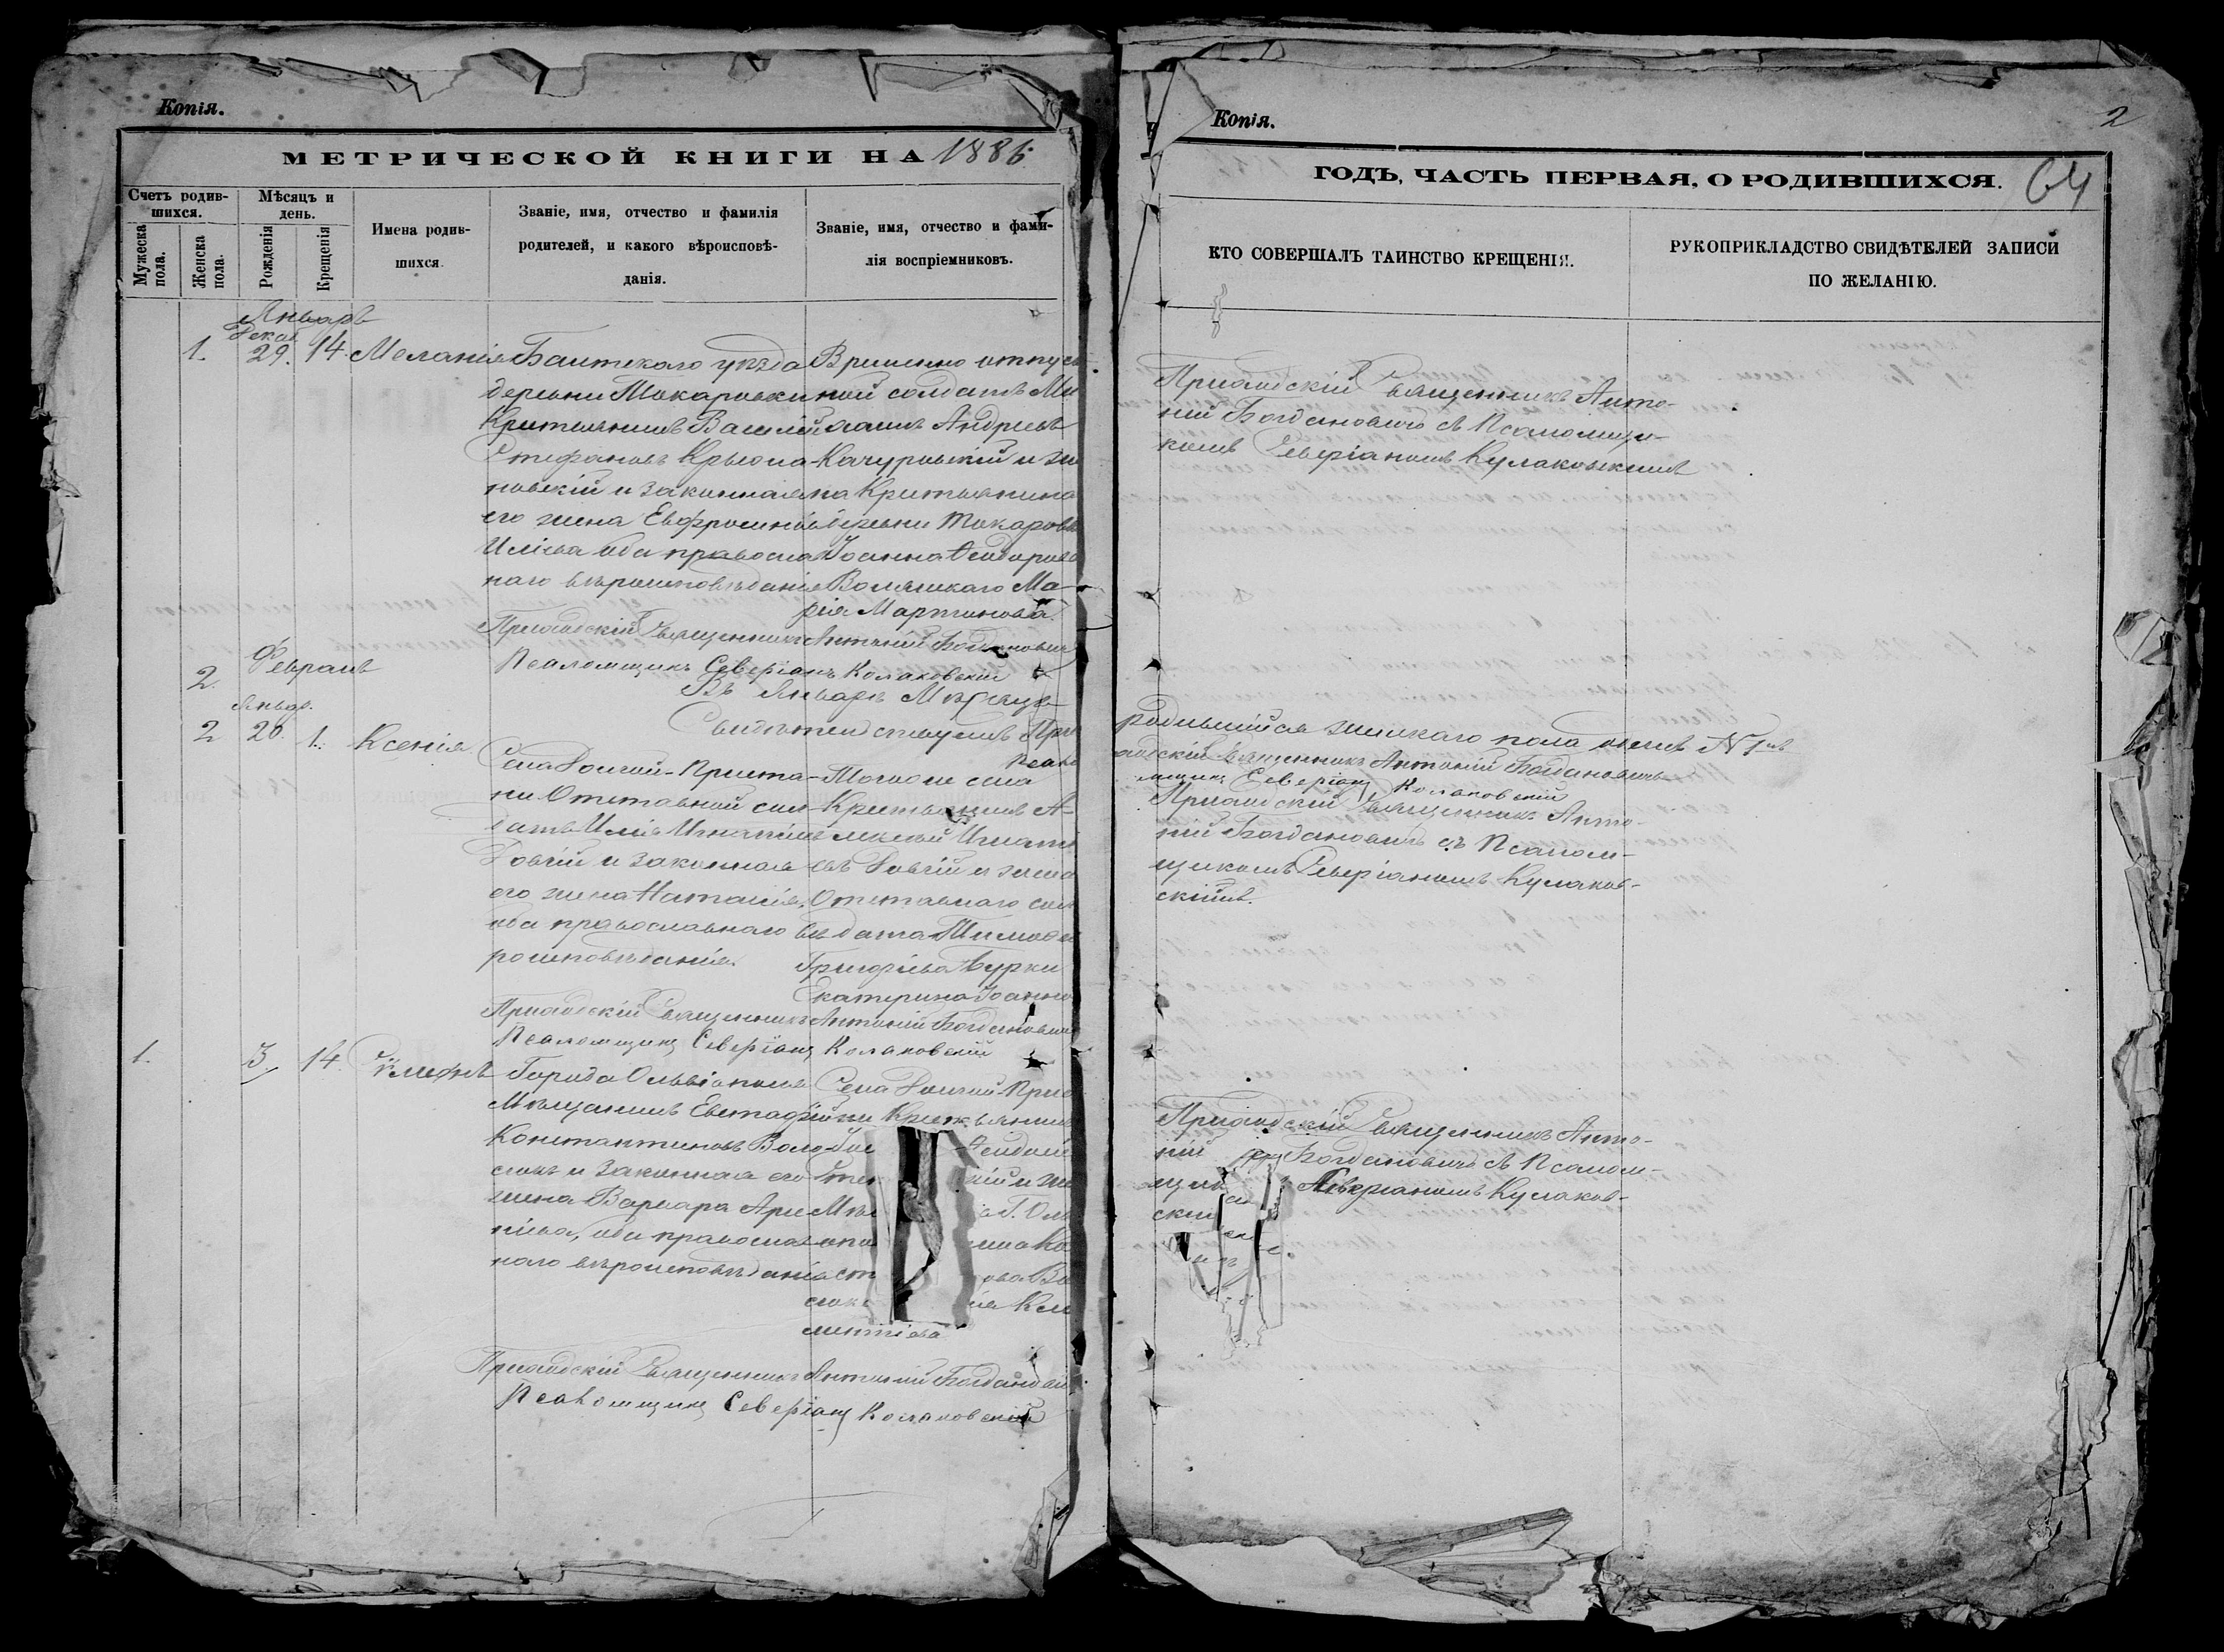 Копія.
МЕТРИЧЕСКОЙ КНИГИ НА 1886
Счетъ родив-
шихся.
Мужеска
пола.
Женска
пола.
Мѣсяцъ и
день.
Рожденія
Крещенія
Имена родив-
шихся.
Званіе, имя, отчество и фамилія
родителей, и какого вѣроисповѣ-
данія.
Званіе, имя, отчество и фами-
лія воспріемниковъ.
Январь
Декаб.
1. 29. 14. Меланія
Балтскаго уѣзда
деревни Токаровки
Крестьянинъ Василій
Стефановъ
новскій и законная
его жена Евфросинія
Иліева оба правосла
наго вѣроисповѣданія
Временно отпуск
ной солдатъ Ми
хаилъ Андреевъ
Качуровскій и же
на Крестьянина
деревни Токаровк
Іоанна Ѳеодоров
Ма-
рія Мартинова
Приходскій Священникъ Антоній Богданович
Псаломщикъ Северіанъ Колаковскій
2. Февраль
Въ Январѣ Мѣсяцѣ
Свидѣтельствуемъ При
Псало
Январ.
2 20. 1. Ксенія
Села Долгой-Приста-
ни Отставной сол
датъ Илія Игнатіевъ
Довгій и законная
его жена Наталія,
оба православнаго вѣ
роисповѣданія.
Тогоже села
Крестьянинъ А-
лексѣй Игнаті
евъ Довгій и жена
Отставнаго сол
дата Тимоѳея
Григоріева Бурки
Екатерина Іоанно
Приходскій Священникъ Антоній Богданович
Псаломщикъ Северіанъ Колаковскій
1. 3. 14.
Города Ольвіополя
Мѣщанинъ Евстафій
Константиновъ Воло-
сюкъ и законная его
жена Варвара
оба правосла
наго вѣроисповѣданія
Села Долгой-Прис
ни Крестьянинъ
кій и же
Г. Оль
Кли
ментіева
Приходскій Священникъ Антоній Богданович
Псаломщикъ Северіанъ Колаковскій
Копія.
2
ГОДЪ, ЧАСТЬ ПЕРВАЯ, О РОДИВШИХСЯ.
64
КТО СОВЕРШАЛЪ ТАИНСТВО КРЕЩЕНІЯ.
РУКОПРИКЛАДСТВО СВИДѢТЕЛЕЙ ЗАПИСИ
ПО ЖЕЛАНІЮ.
Приходскій Священникъ Анто-
ній Богдановичъ съ Псаломщи-
комъ Северіаномъ Кулаковскимъ
родившійся женскаго пола одинъ № 1нъ
ходскій Священникъ Антоній Богдановичъ
мщикъ Северіанъ Колаковскій
Приходскій Священникъ Анто-
ній Богдановичъ съ Псалом-
щикомъ Северіаномъ Кулаков-
скимъ.
Приходскій Священникъ Анто-
ній Богдановичъ съ Псалом-
щик Северіаномъ Кулаков-
ским